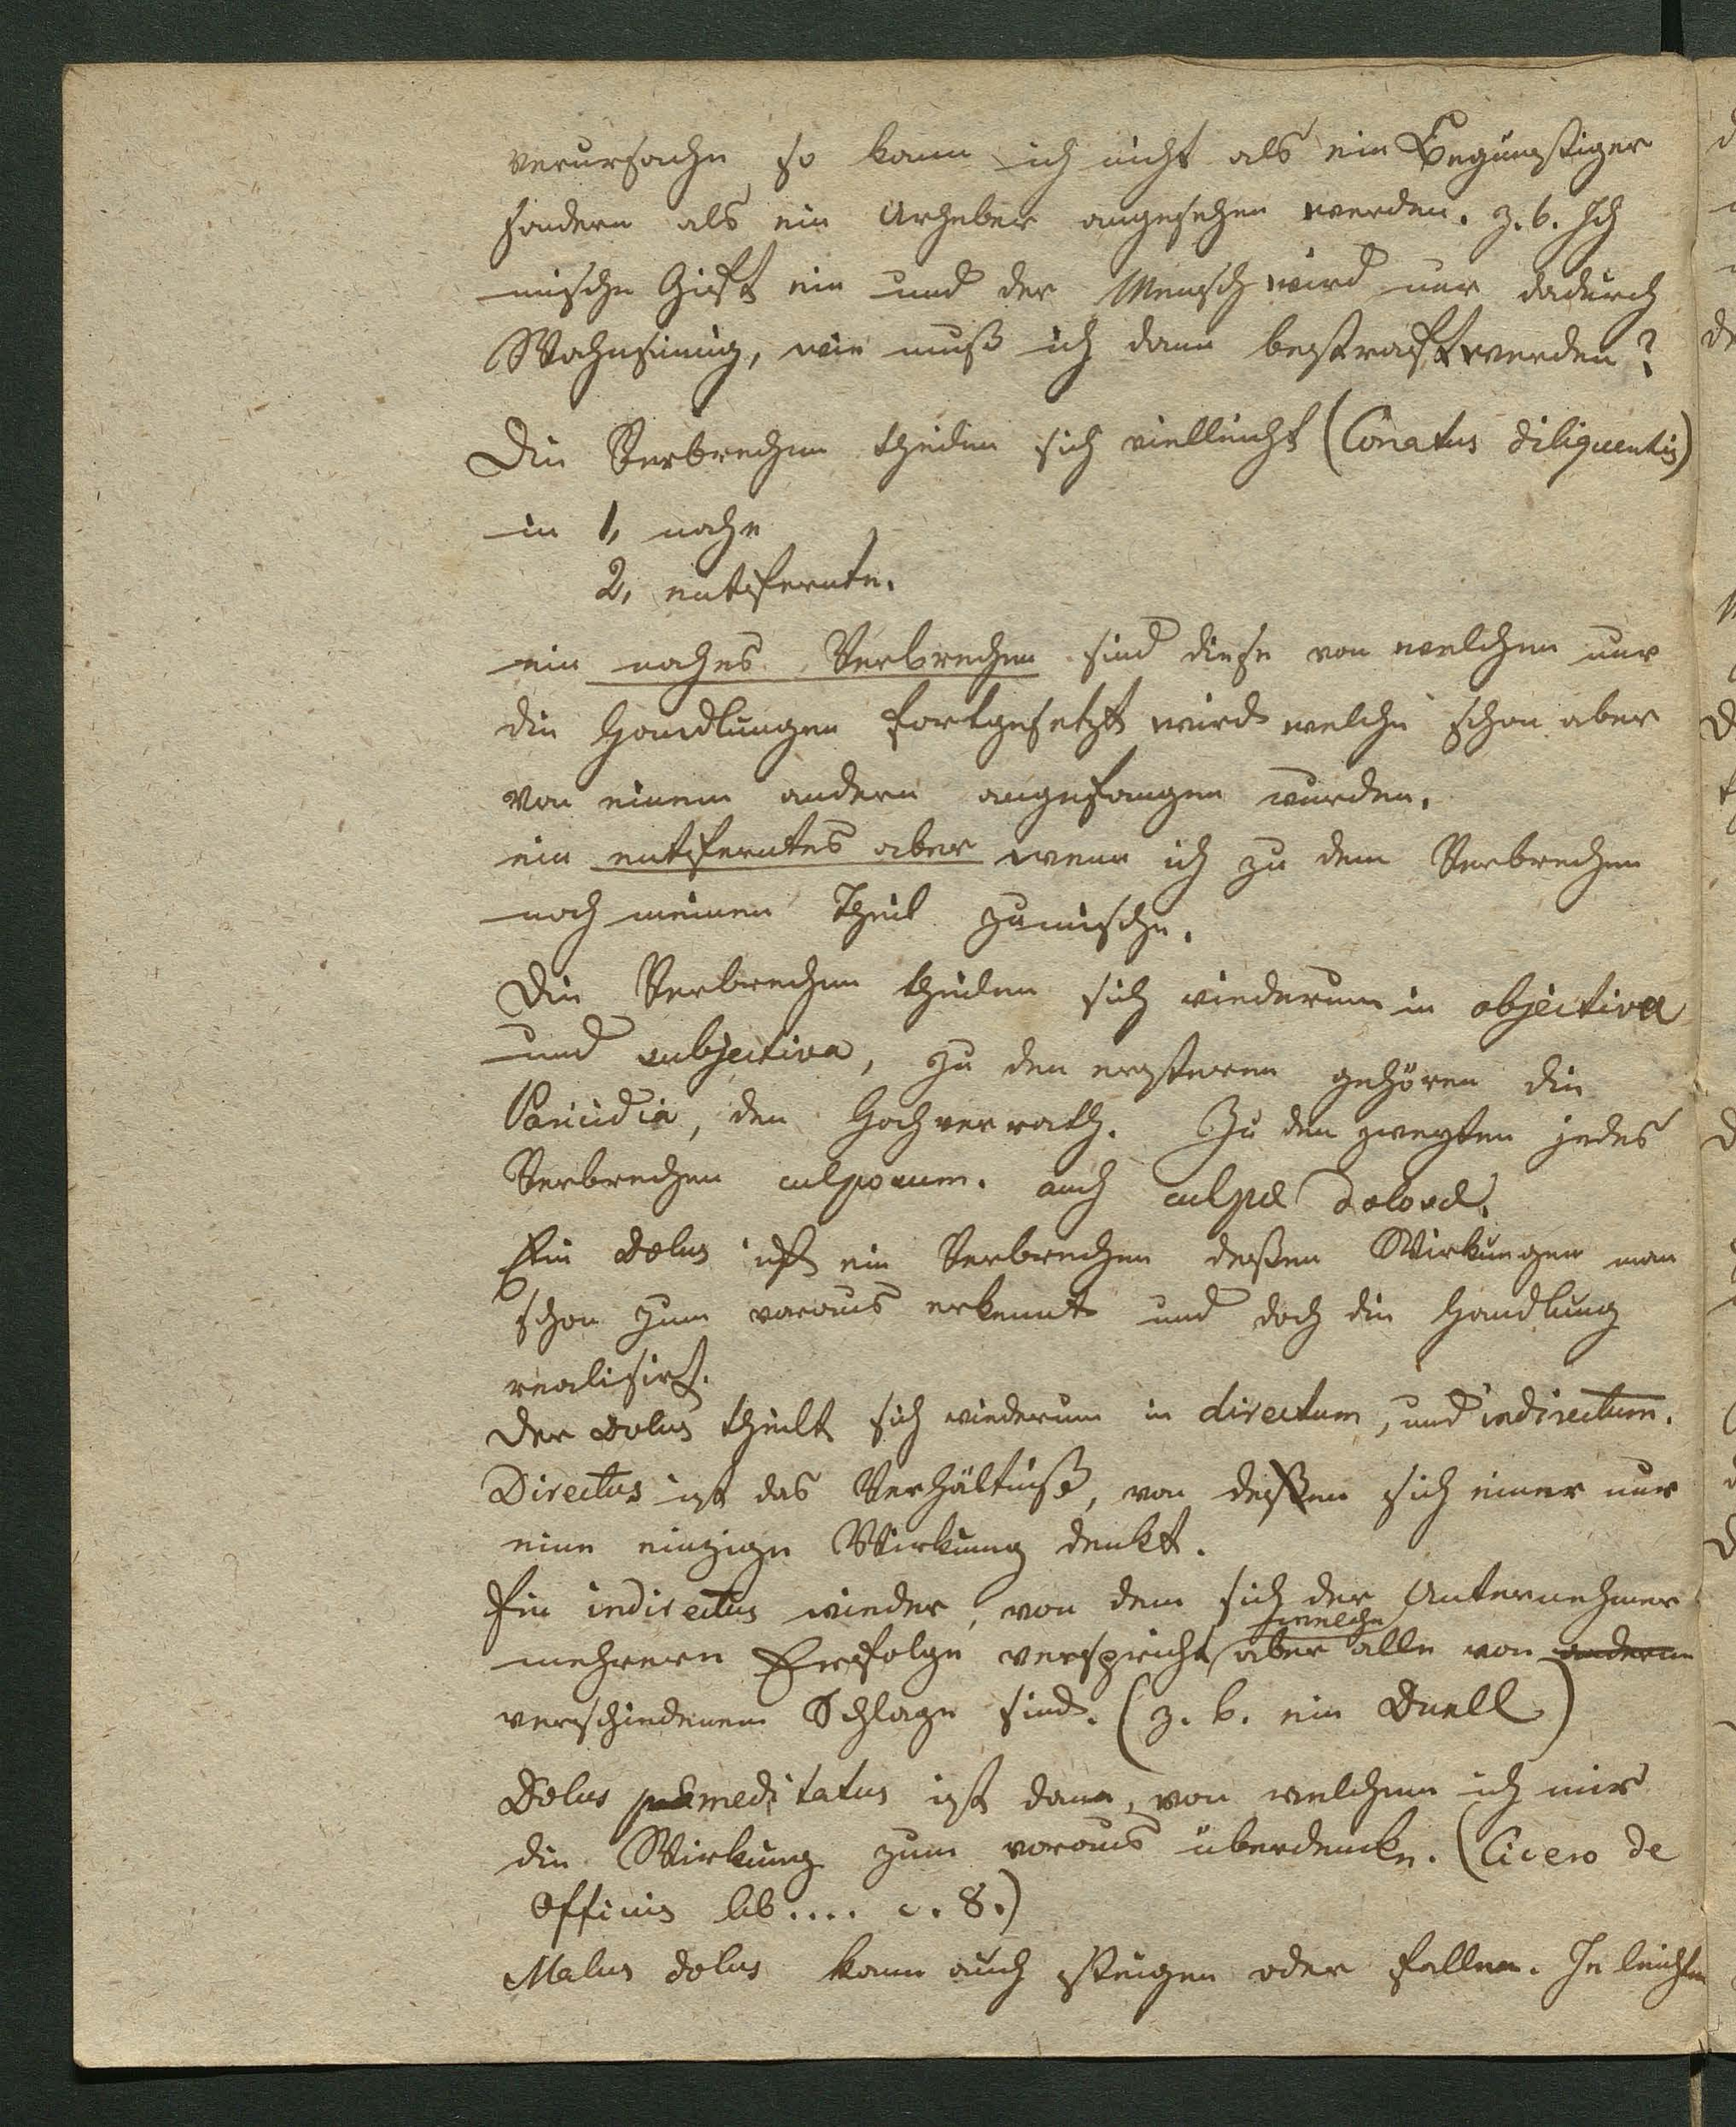 verursache, so kann ich nicht als ein Begünstiger
sondern als ein Urheber angesehen werden. z. b. Ich
mische Gift ein und der Mensch wird nur dadurch
Wahnsinnig, wie muß ich dann bestraft werden?
Die Verbrechen theilen sich vielleicht (Conatus diliquentis)
in 1, nahe
2, entfernte.
ein nahes Verbrechen sind diese von welchen nur
die Handlungen fortgesetzt wird welche schon aber
von einem andern angefangen wurden.
ein entferntes aber wenn ich zu dem Verbrechen
noch meinen Theil zumische.
Die Verbrechen theilen sich wiederum in objectiva
und subjectiva, zu den ersteren gehören die
Paricidia, den Hochverrath. Zu den zweyten jedes
Verbrechen culposum. auch culpæ
Ein Dolus ist ein Verbrechen deßen Wirkungen man
schon zum voraus erkennt und doch die Handlung
realisirt.
Der Dolus theilt sich wiederum in directum, und indirectum.
Directus ist das Verhältniß, von deßen sich einer nur
eine einzige Wirkung denkt.
Ein indirectus wieder, von dem sich der Unternehmer
mehrere Erfolge verspricht welche aber alle von anderem
verschiedenem Schlage sind. (z. b. ein Duell)
Dolus præmeditatus ist dann, von welchem ich mir
die Wirkung zum voraus überdencke. (Cicero de
Officiis lib.... c. 8.)
Malus dolus kann auch steigen oder fallen. Je leichter